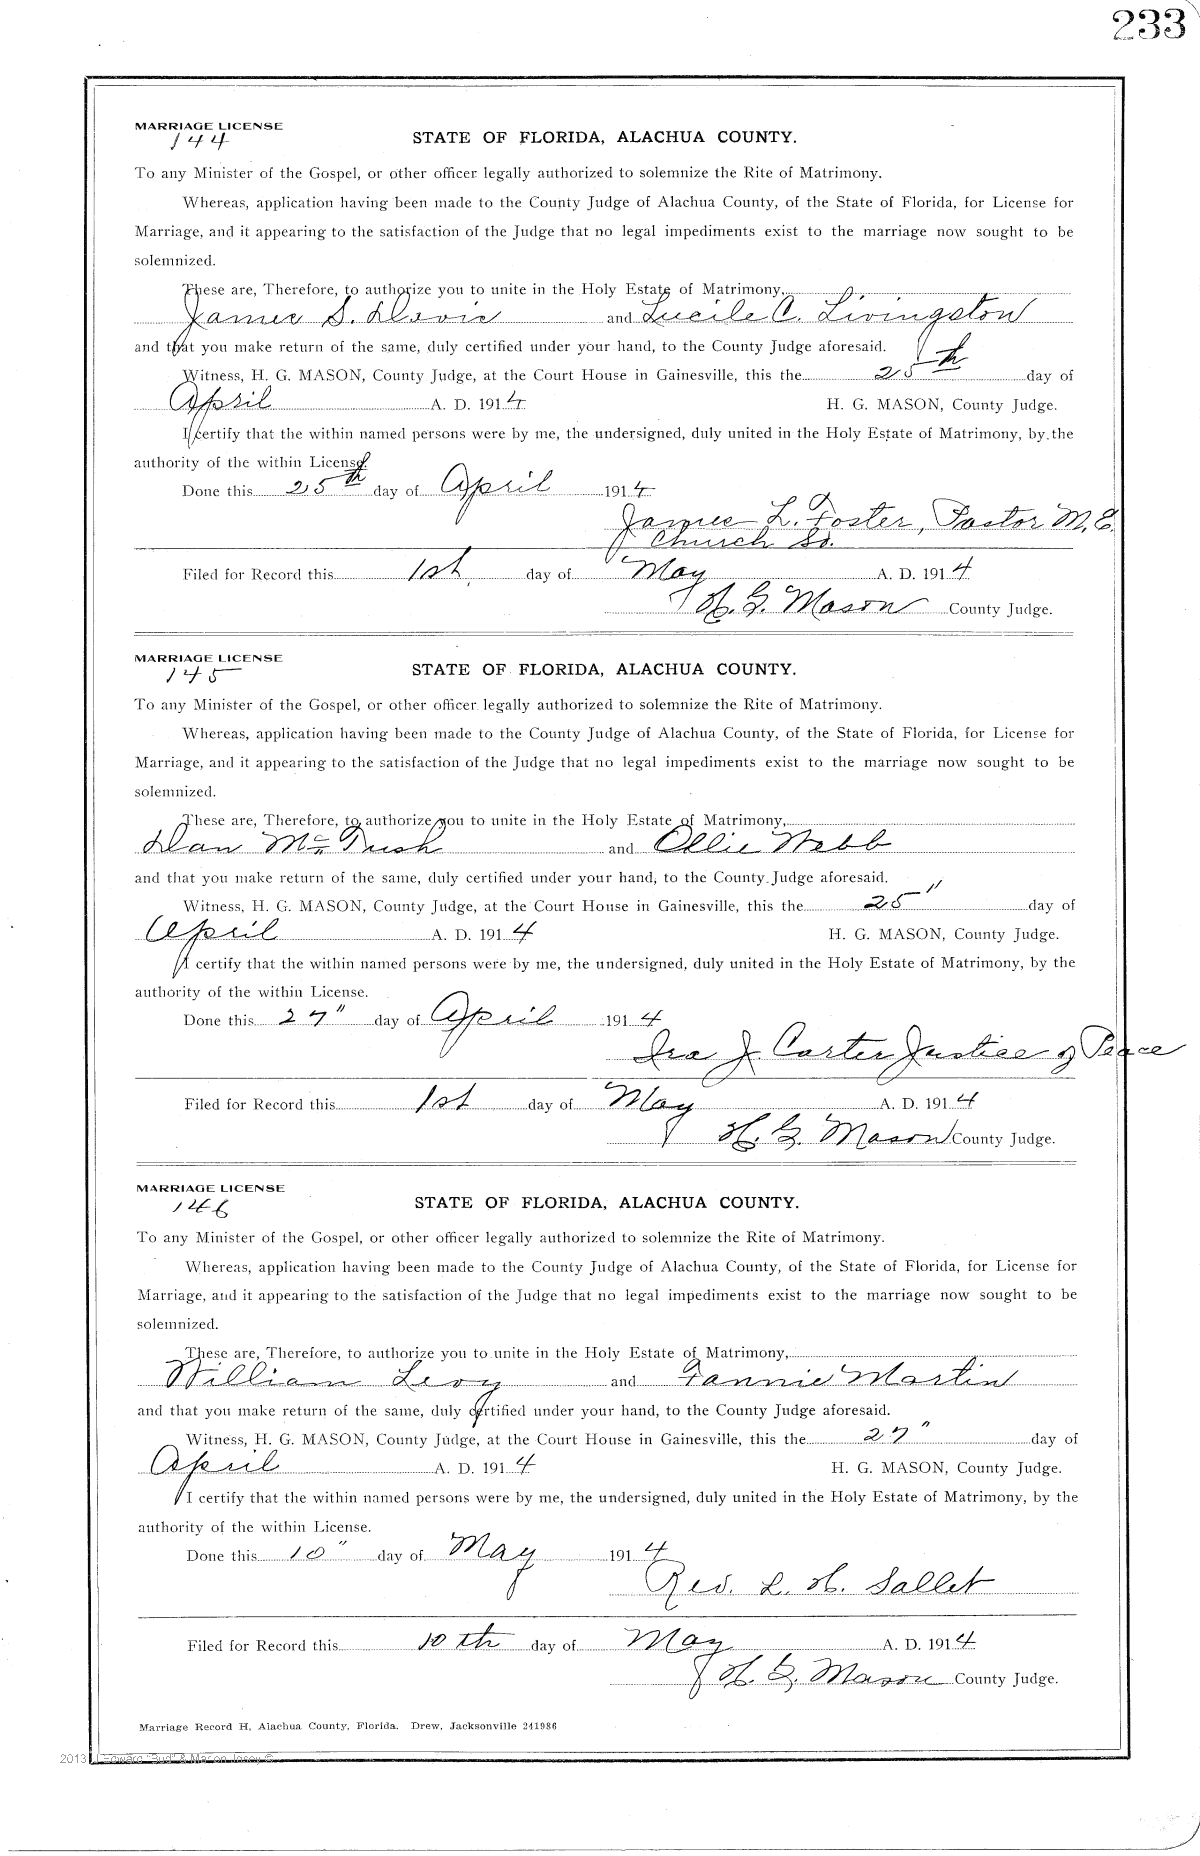 233
MARRIAGE LICENSE
144
STATE OF FLORIDA, ALACHUA COUNTY.
To any Minister of the Gospel, or other officer legally authorized to solemnize the Rite of Matrimony.
Whereas, application having been made to the County Judge of Alachua County, of the State of Florida, for License for
Marriage, and it appearing to the satisfaction of the Judge that no legal impediments exist to the marriage now sought to be
solemnized.
These are, Therefore, to authorize you to unite in the Holy Estate of Matrimony,
James S. Davis and Lucile C. Livingston
and that you make return of the same, duly certified under your hand, to the County Judge aforesaid.
Witness, H. G. MASON, County Judge, at the Court House in Gainesville, this the 25th day of
April A. D. 1914 H. G. MASON, County Judge.
I certify that the within named persons were by me, the undersigned, duly united in the Holy Estate of Matrimony, by the
authority of the within License.
Done this 25th day of April 1914
James L. Foster, Pastor M.E.
Church So.
Filed for Record this 1st day of May A. D. 1914
H. G. Mason County Judge.
MARRIAGE LICENSE
145
STATE OF FLORIDA, ALACHUA COUNTY.
To any Minister of the Gospel, or other officer legally authorized to solemnize the Rite of Matrimony.
Whereas, application having been made to the County Judge of Alachua County, of the State of Florida, for License for
Marriage, and it appearing to the satisfaction of the Judge that no legal impediments exist to the marriage now sought to be
solemnized.
These are, Therefore, to authorize you to unite in the Holy Estate of Matrimony,
Dan and Ollie Webb
and that you make return of the same, duly certified under your hand, to the County Judge aforesaid.
Witness, H. G. MASON, County Judge, at the Court House in Gainesville, this the 25" day of
April A. D. 1914 H. G. MASON, County Judge.
I certify that the within named persons were by me, the undersigned, duly united in the Holy Estate of Matrimony, by the
authority of the within License.
Done this 27" day of April 1914
Ira J. Carter Justice of Peace
Filed for Record this 1st day of May A. D. 1914
H. G. Mason County Judge.
MARRIAGE LICENSE
146
STATE OF FLORIDA, ALACHUA COUNTY.
To any Minister of the Gospel, or other officer legally authorized to solemnize the Rite of Matrimony.
Whereas, application having been made to the County Judge of Alachua County, of the State of Florida, for License for
Marriage, and it appearing to the satisfaction of the Judge that no legal impediments exist to the marriage now sought to be
solemnized.
These are, Therefore, to authorize you to unite in the Holy Estate of Matrimony,
William Levy and Fannie Martin
and that you make return of the same, duly certified under your hand, to the County Judge aforesaid.
Witness, H. G. MASON, County Judge, at the Court House in Gainesville, this the 27" day of
April A. D. 1914 H. G. MASON, County Judge.
I certify that the within named persons were by me, the undersigned, duly united in the Holy Estate of Matrimony, by the
authority of the within License.
Done this 10" day of May 1914
Rev. L. H. Sallet
Filed for Record this 10th day of May A. D. 1914
H. G. Mason County Judge.
Marriage Record H, Alachua County, Florida. Drew, Jacksonville 241986
2013